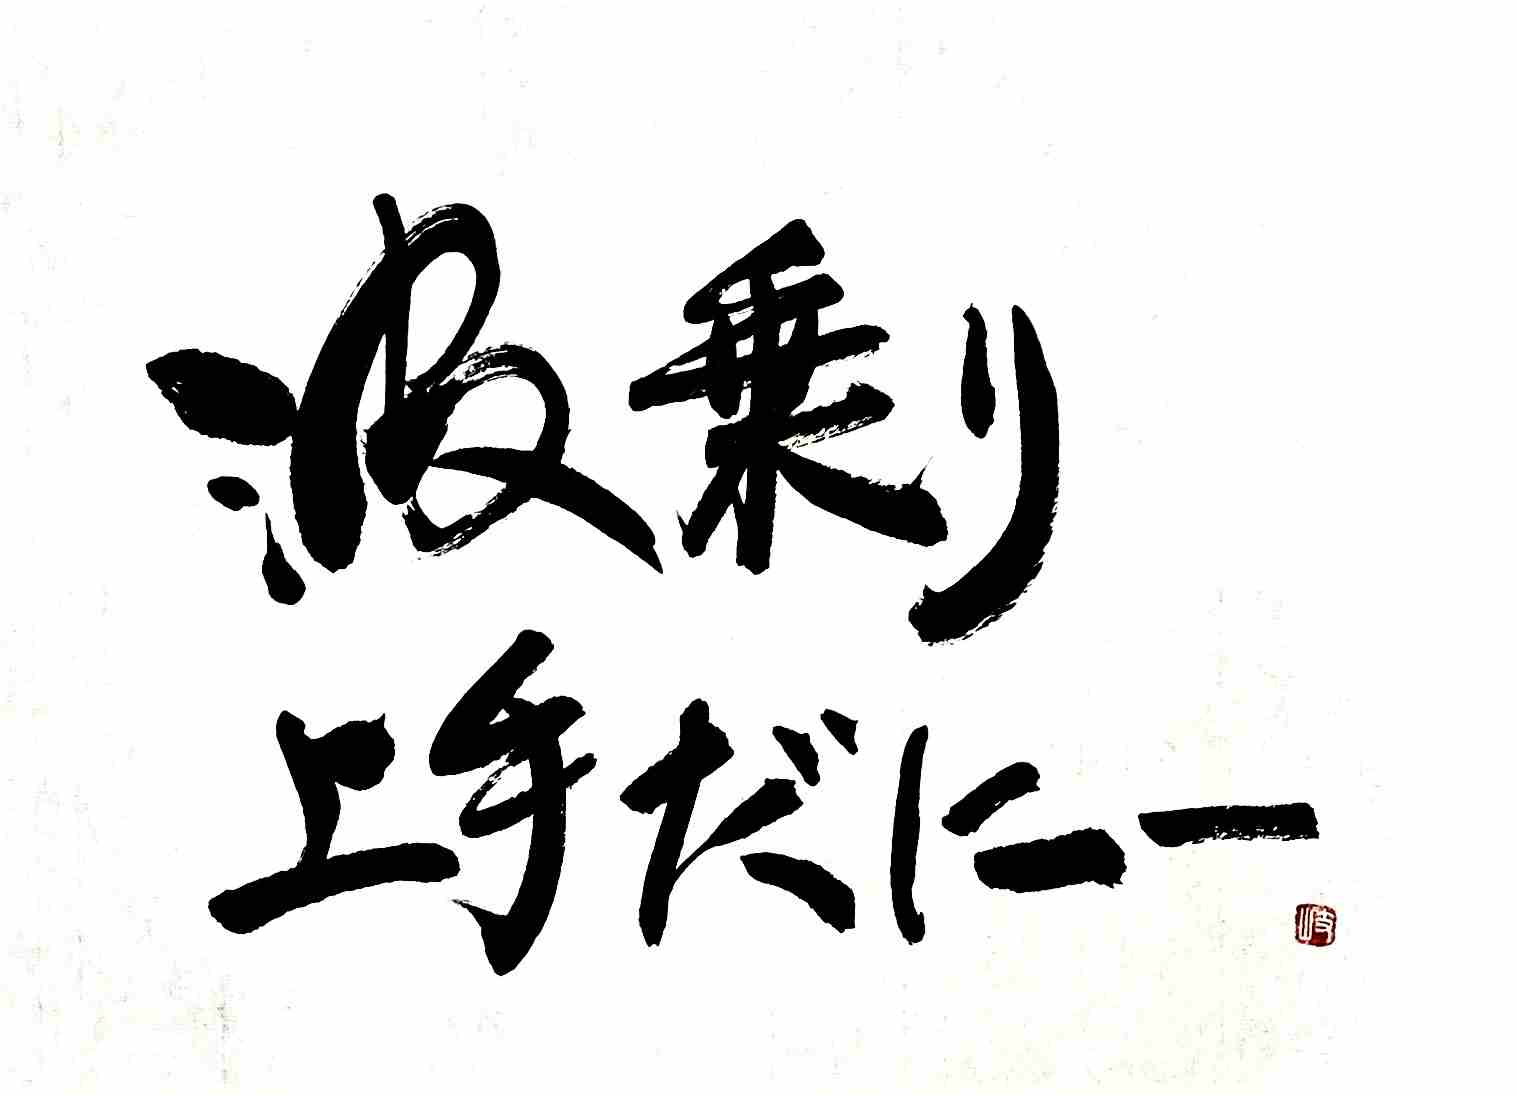 波乗り
上手だにー
岐